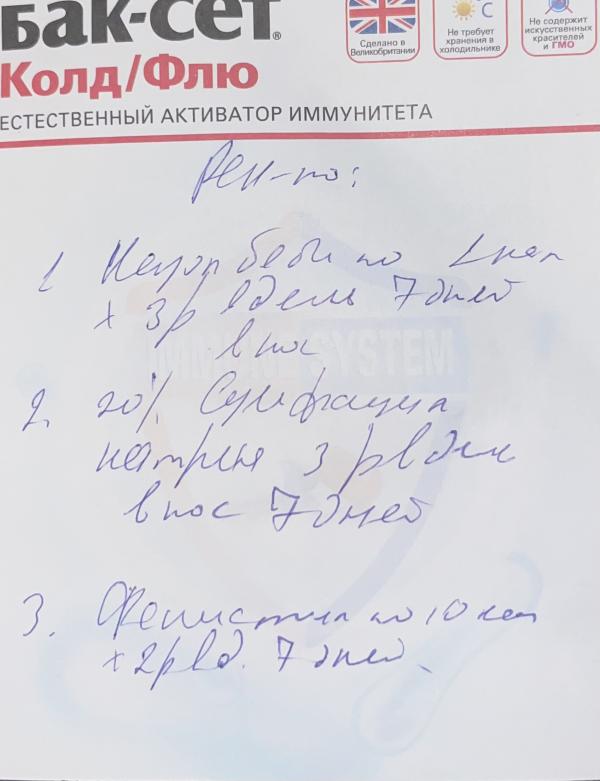 Бак-сет®
Колд/Флю
ЕСТЕСТВЕННЫЙ АКТИВАТОР ИММУНИТЕТА
Сделано в
Великобритании
°C
Не требует
хранения в
холодильнике
Не содержит
искусственных
красителей
и ГМО
Рек-но:
1. Називин беби по 1 кап
x 3 р в день 7 дней
в нос
IMMUNE SYSTEM
2. 20% Сульфацил
натрия 3 р в день
в нос 7 дней
3. Фенистил по 10 кап
x 2 р в д. 7 дней.